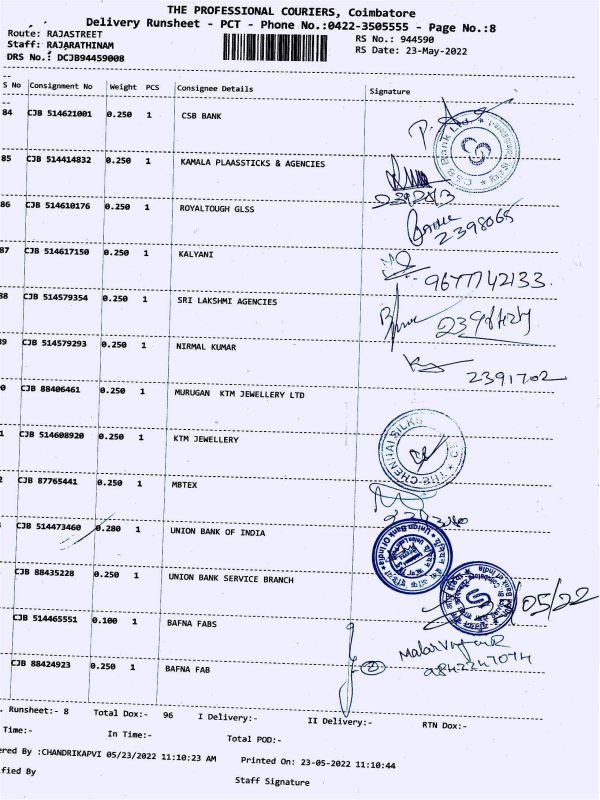 THE PROFESSIONAL COURIERS, Coimbatore
Delivery Runsheet - PCT - Phone No.:0422-3505555 - Page No.:8
Route: RAJASTREET
RS No.: 944590
Staff: RAJARATHINAM
RS Date: 23-May-2022
DRS No.: DCJB94459008
S No Consignment No Weight PCS Consignee Details Signature
84 CJB 514621001 0.250 1 CSB BANK
85 CJB 514414832 0.250 1 KAMALA PLAASSTICKS & AGENCIES
86 CJB 514610176 0.250 1 ROYALTOUGH GLSS
2398065
87 CJB 514617150 0.250 1 KALYANI
9677742133
88 CJB 514579354 0.250 1 SRI LAKSHMI AGENCIES
89 CJB 514579293 0.250 1 NIRMAL KUMAR
2391702
0 CJB 88406461 0.250 1 MURUGAN KTM JEWELLERY LTD
1 CJB 514608920 0.250 1 KTM JEWELLERY
THE CHENNAI SILKS
2 CJB 87765441 0.250 1 MBTEX
CJB 514473460 0.280 1 UNION BANK OF INDIA
Union Bank Of India
CJB 88435228 0.250 1 UNION BANK SERVICE BRANCH
/05/22
CJB 514465551 0.100 1 BAFNA FABS
9842247074
CJB 88424923 0.250 1 BAFNA FAB
. Runsheet:- 8 Total Dox:- 96 I Delivery:- II Delivery:- RTN Dox:-
Time:- In Time:- Total POD:-
ered By :CHANDRIKAPVI 05/23/2022 11:10:23 AM Printed On: 23-05-2022 11:10:44
ified By Staff Signature